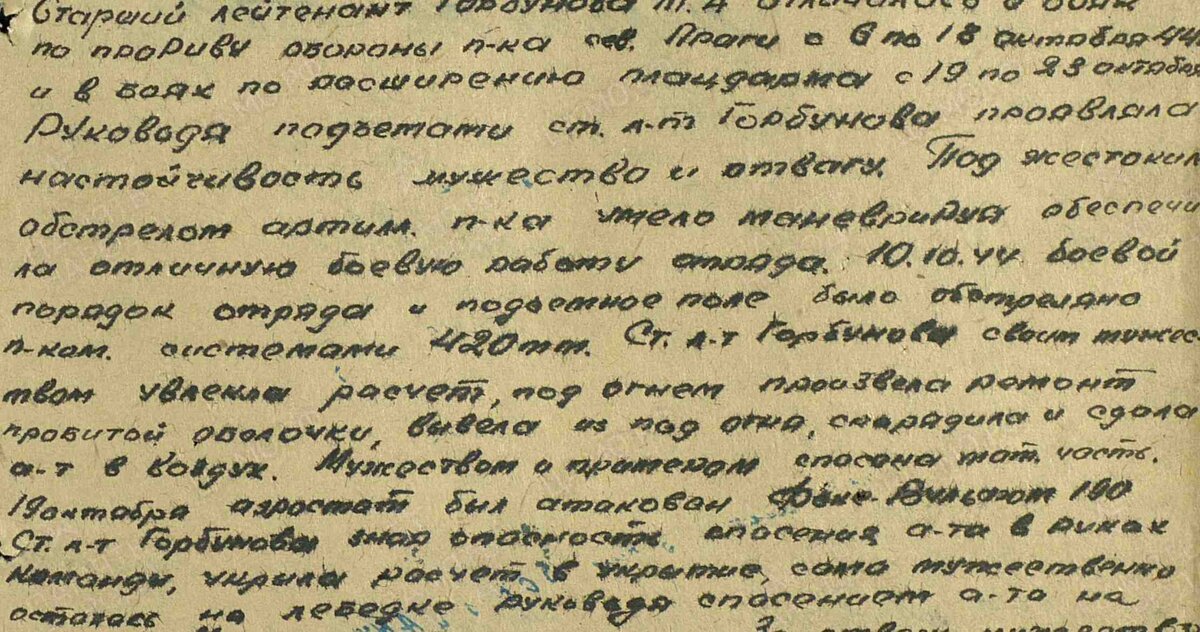 Старший лейтенант Горбунова М. А отличалась в боях
по прориву обороны п-ка сев. Праги с 6 по 18 октября 44
и в боях по расширению плацдарма с 19 по 23 октября
Руководя подъемами ст. л-т Горбунова проявляла
настойчивость мужество и отвагу. Под жестоким
обстрелом артил. п-ка умело маневрируя обеспечи
ла отличную боевую работу отряда. 10.10.44 боевой
порядок отряда и подъемное поле было обстреляно
п-ком. системами 420мм. Ст. л-т Горбунова своим мужес-
твом увлекла расчет, под огнем произвела ремонт
пробитой оболочки, вывела из под огня, снарядила и сдала
а-т в воздух. Мужеством и примером спасена мат. часть.
19 октября аэростат был атакован Фоке-Вульфом 190
Ст. л-т Горбунова зная опасность спасения а-та в руках
команды, укрила расчет в укрытие, сама мужественно
осталась на лебедке руководя спасением а-та на